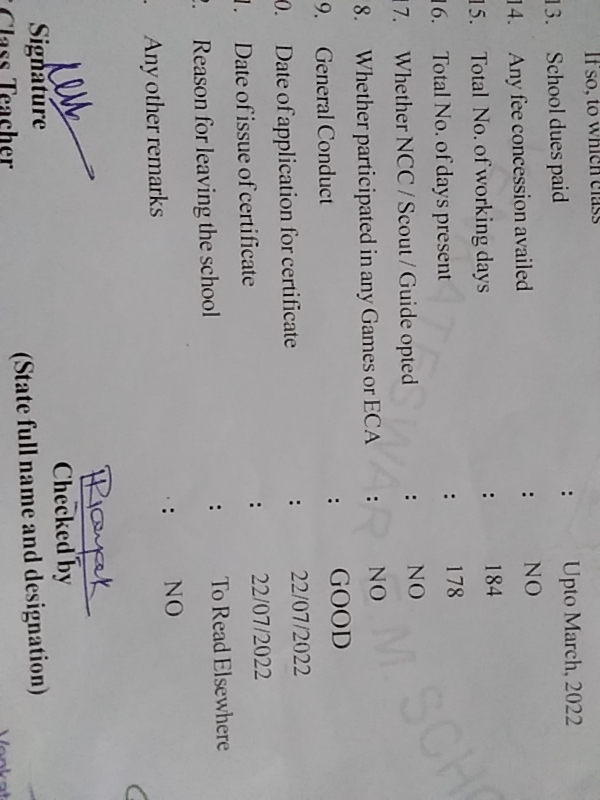 If so, to which class
13. School dues paid : Upto March, 2022
14. Any fee concession availed : NO
15. Total No. of working days : 184
16. Total No. of days present : 178
17. Whether NCC / Scout / Guide opted : NO
8. Whether participated in any Games or ECA : NO
9. General Conduct : GOOD
0. Date of application for certificate : 22/07/2022
1. Date of issue of certificate : 22/07/2022
2. Reason for leaving the school : To Read Elsewhere
. Any other remarks : NO
Signature
Class Teacher
Checked by
(State full name and designation)
Venkat